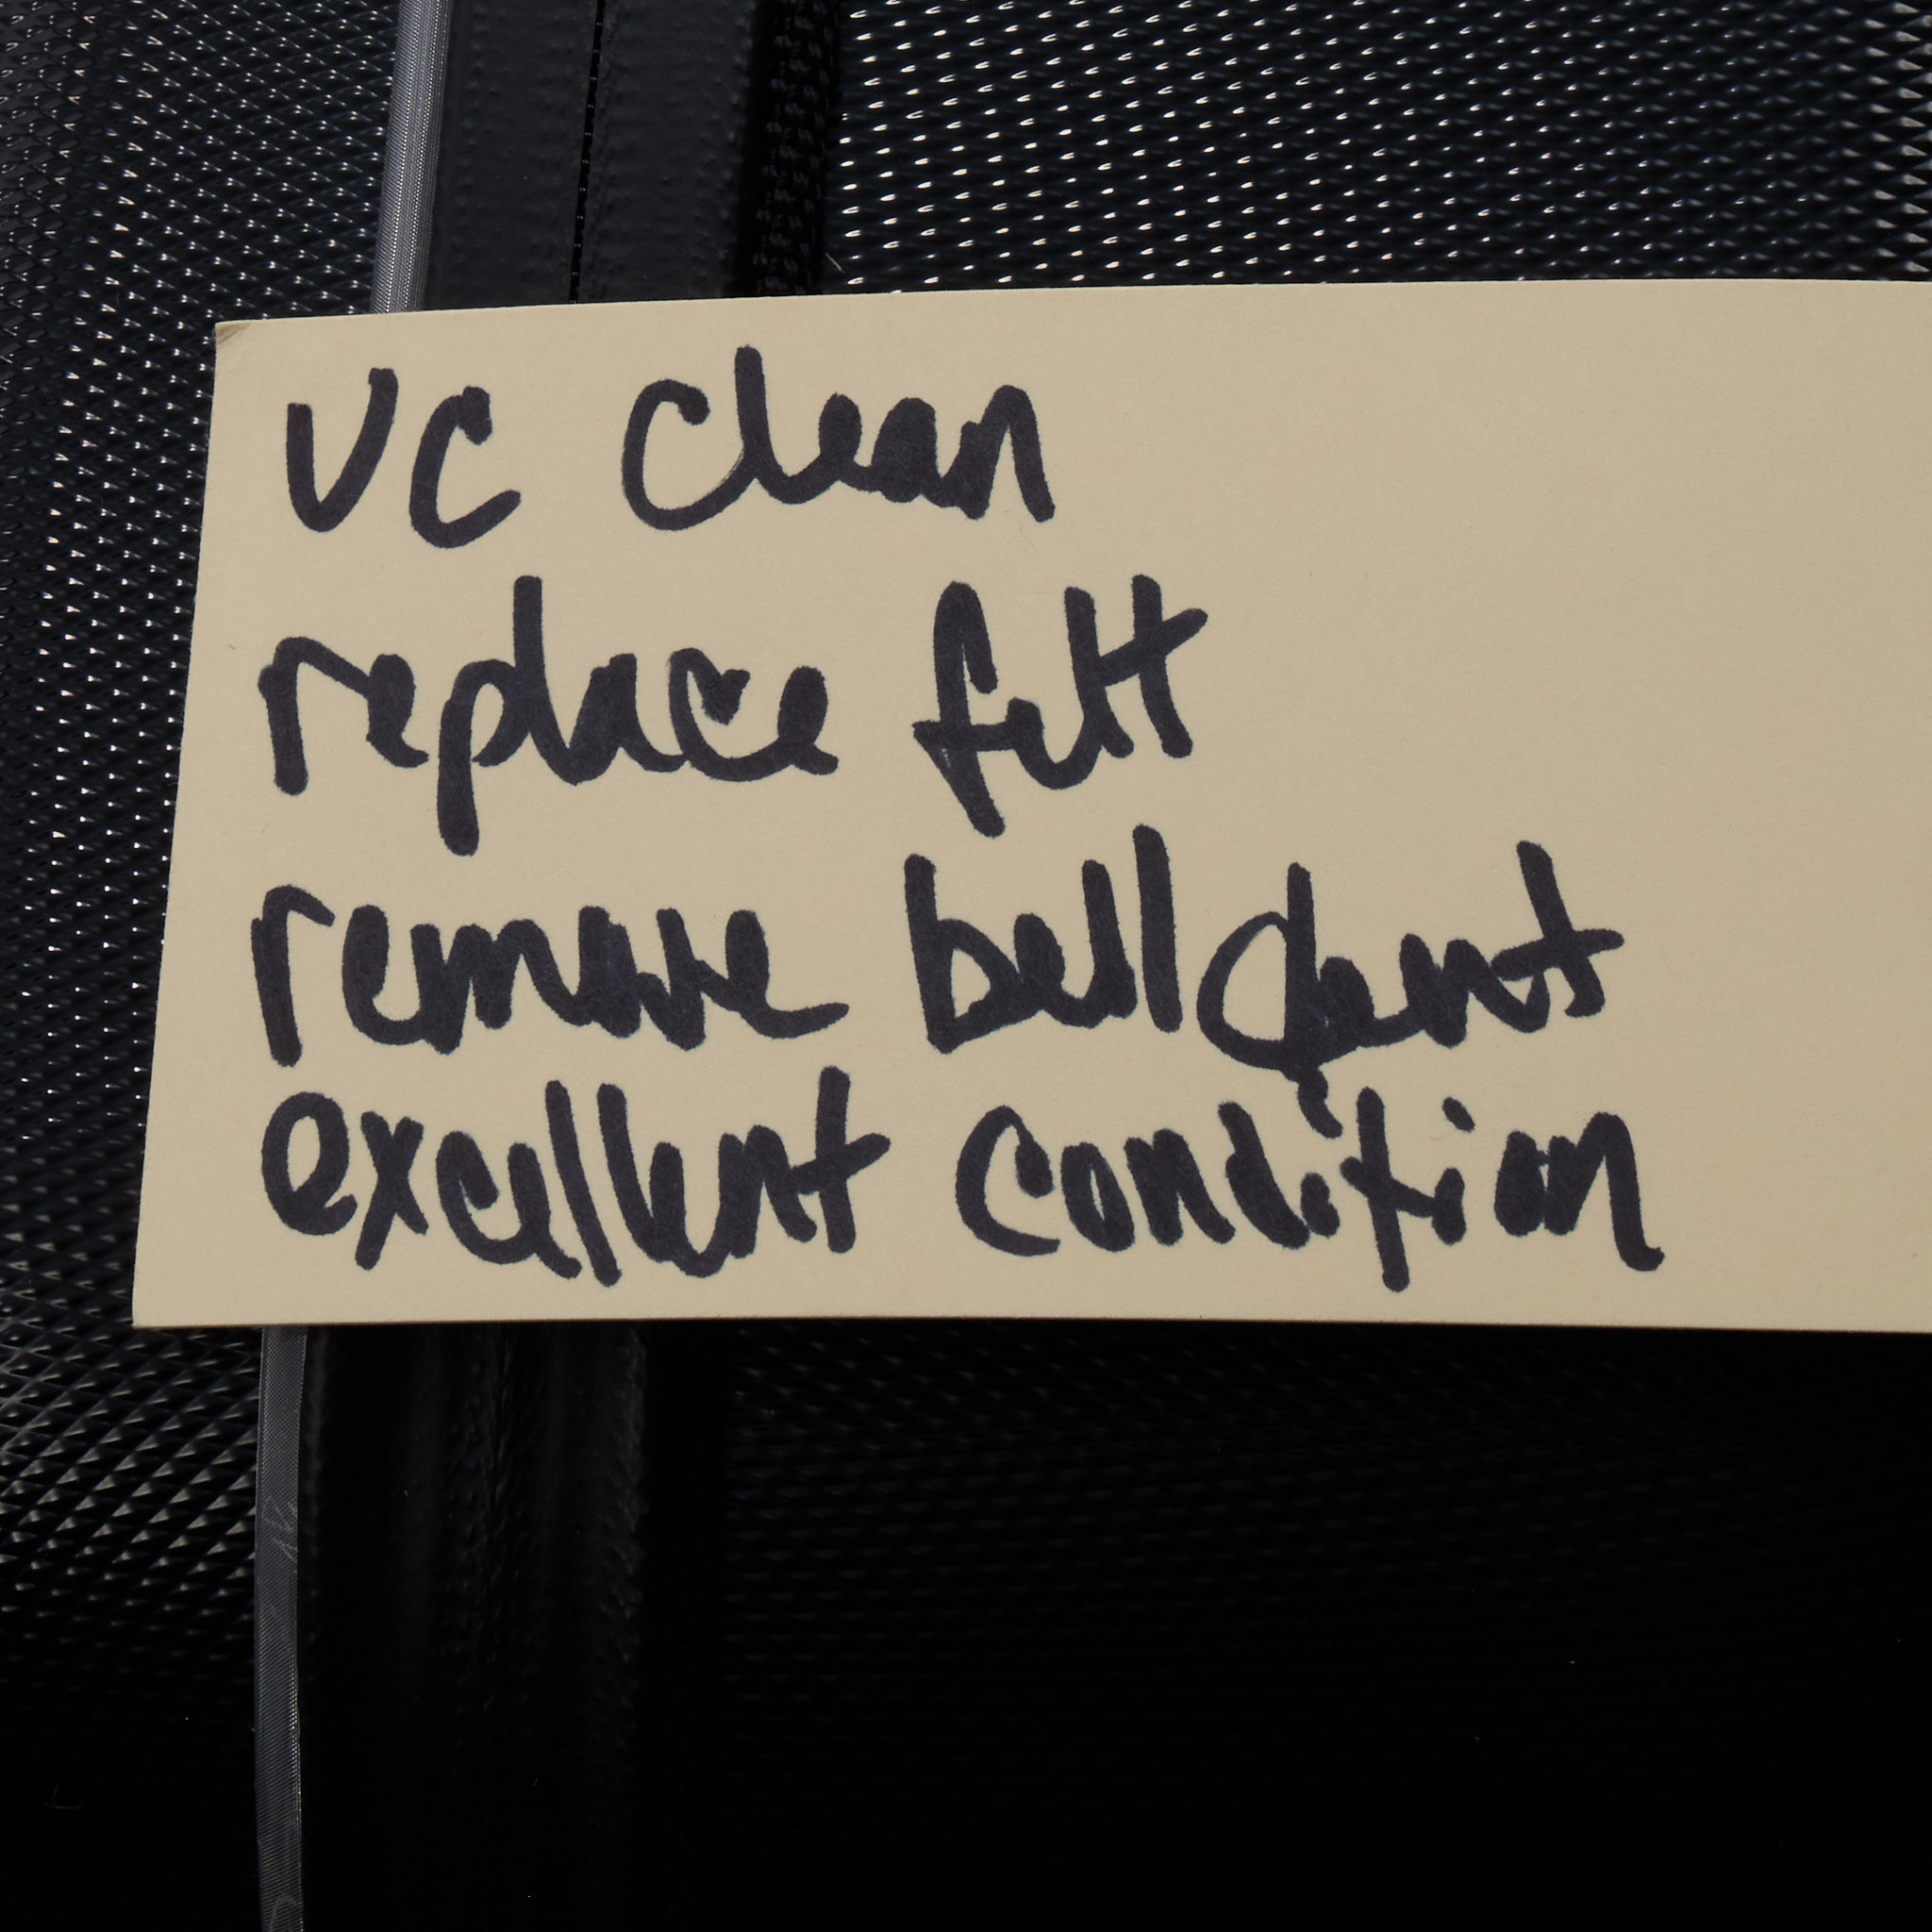 UC Clean
replace felt
remove bell dent
excellent condition